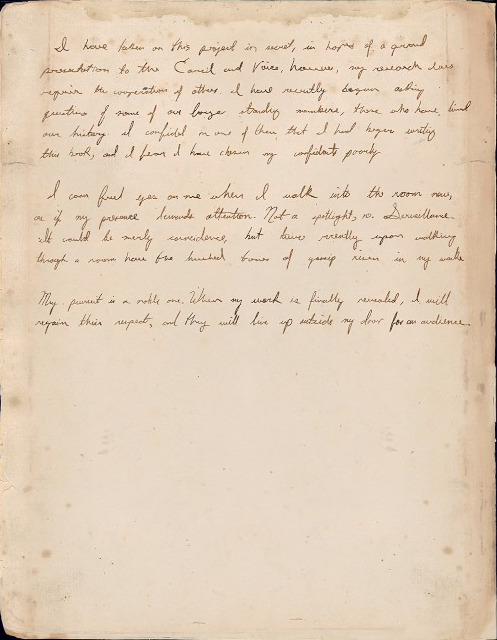 I have taken on this project in secret, in hopes of a grand
presentation to the Council and Voice, however, my research does
require the cooperation of others. I have recently begun asking
questions of some of our longer standing members, those who have lived
our history. I confided in one of them that I had begun writing
this book, and I fear I have chosen my confidants poorly.
I can feel eyes on me when I walk into the room now,
as if my presence demands attention. Not a spotlight, no. Surveillance.
It could be merely coincidence, but twice recently upon walking
through a room have I heard tones of gossip risen in my wake
My pursuit is a noble one. When my work is finally revealed, I will
regain their respect, and they will line up outside my door for an audience.